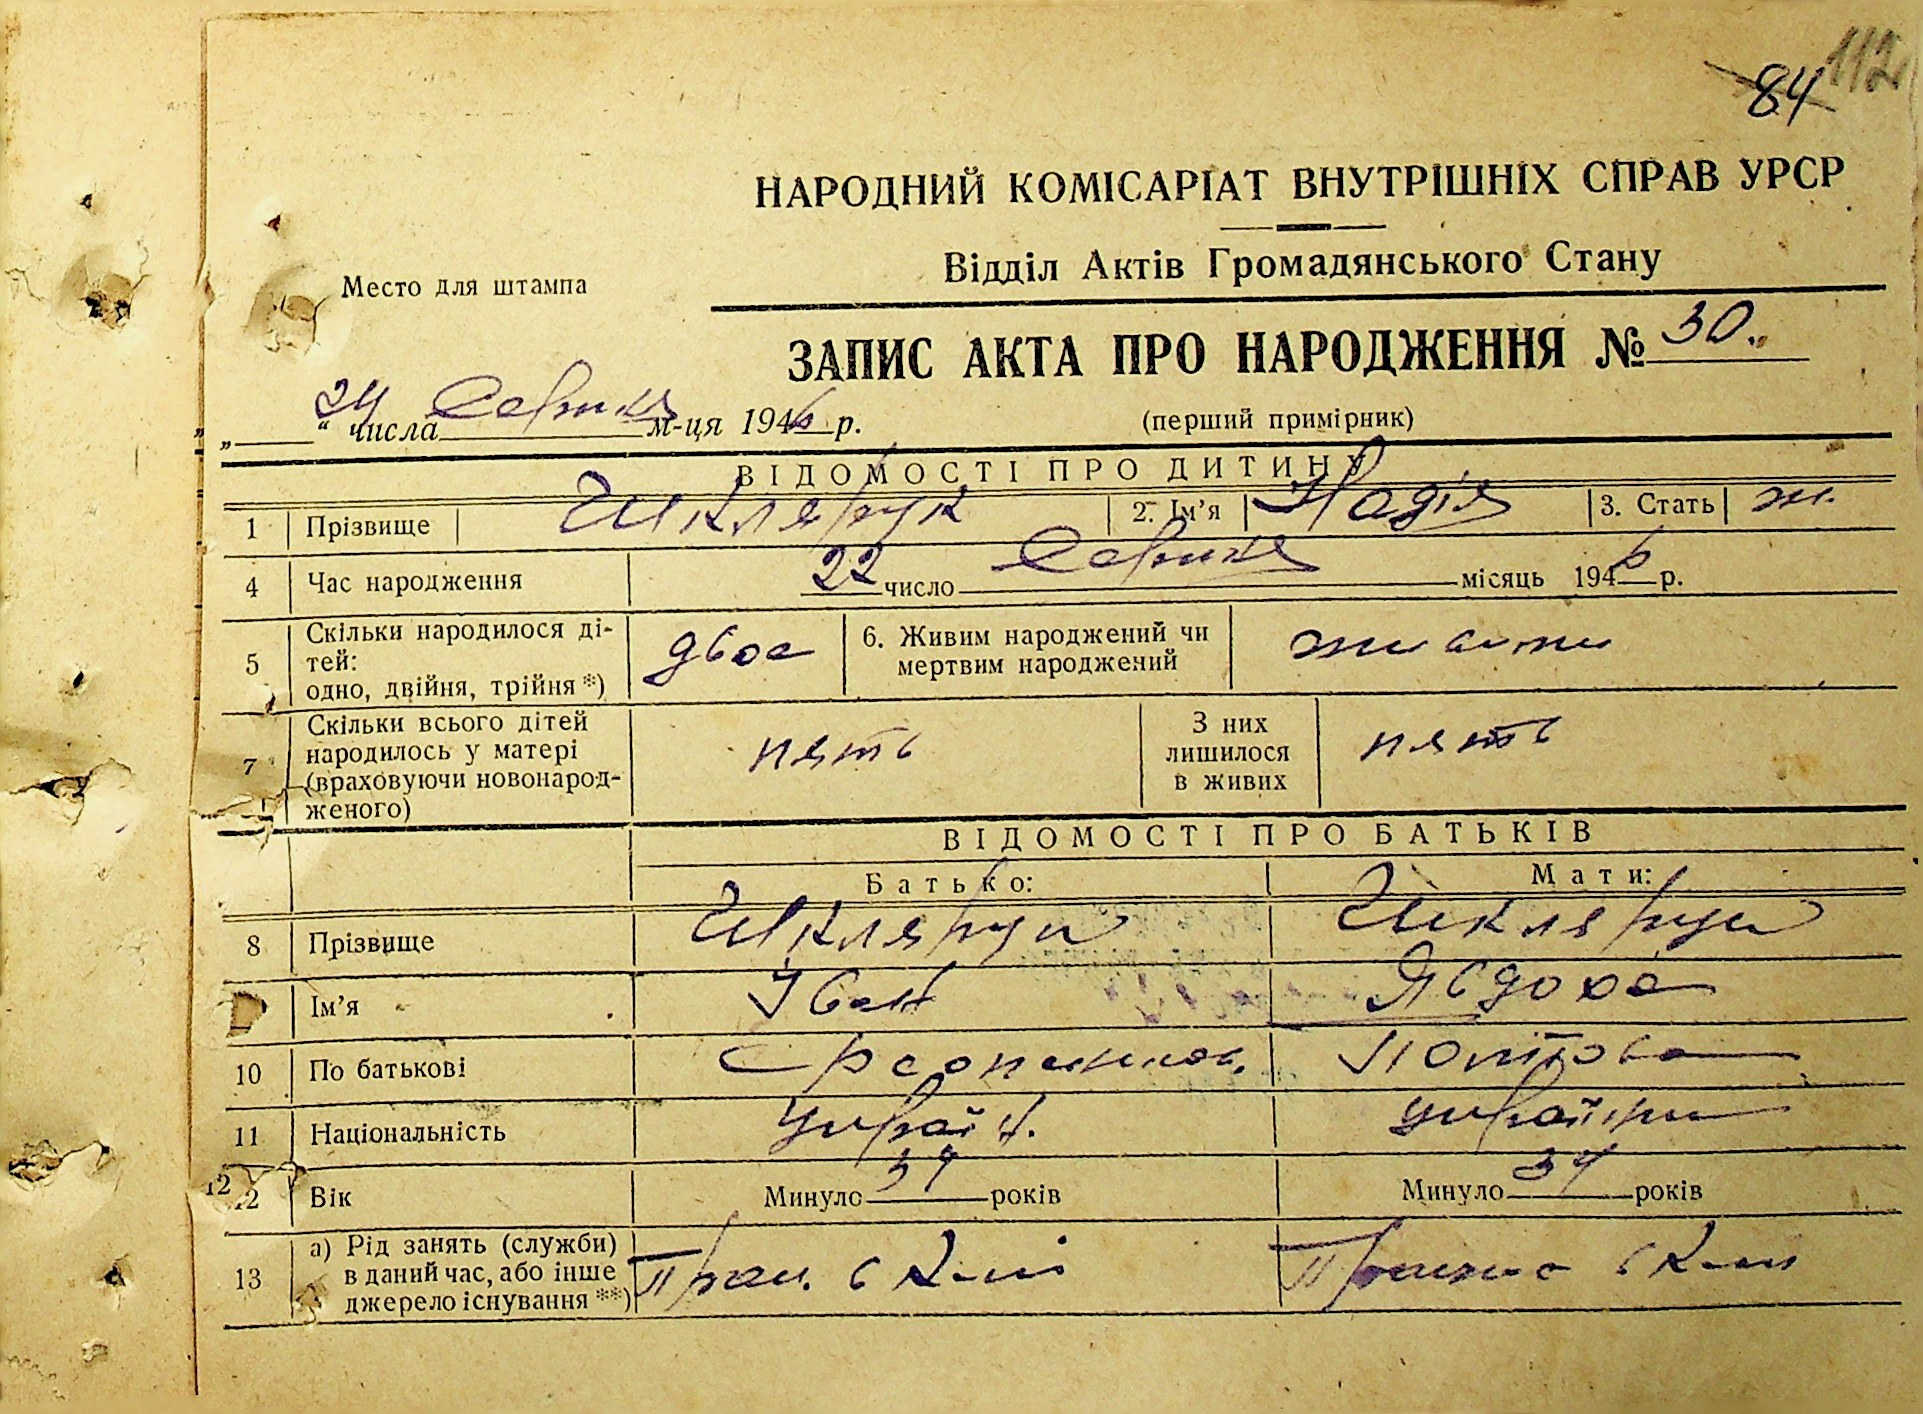 112
84
НАРОДНИЙ КОМІСАРІАТ ВНУТРІШНІХ СПРАВ УРСР
Відділ Актів Громадянського Стану
Место для штампа
ЗАПИС АКТА ПРО НАРОДЖЕННЯ № 30.
„ 24 “ числа Серпня м-ця 1946 р.
(перший примірник)
ВІДОМОСТІ ПРО ДИТИНУ
1 Прізвище Шклярук 2. Ім’я Надія 3. Стать ж.
4 Час народження 22 число Серпня місяць 1946 р.
5 Скільки народилося ді-
тей:
одно, двійня, трійня *) двое 6. Живим народжений чи
мертвим народжений живими
7 Скільки всього дітей
народилось у матері
(враховуючи новонарод-
женого) пять З них
лишилося
в живих пять
ВІДОМОСТІ ПРО БАТЬКІВ
Батько: Мати:
8 Прізвище Шклярук Шклярук
Ім’я Іван Явдоха
10 По батькові
11 Національність Україн.
12 Вік Минуло 34 років Минуло 34 років
12
13 а) Рід занять (служби)
в даний час, або інше
джерело існування **) Прац. в